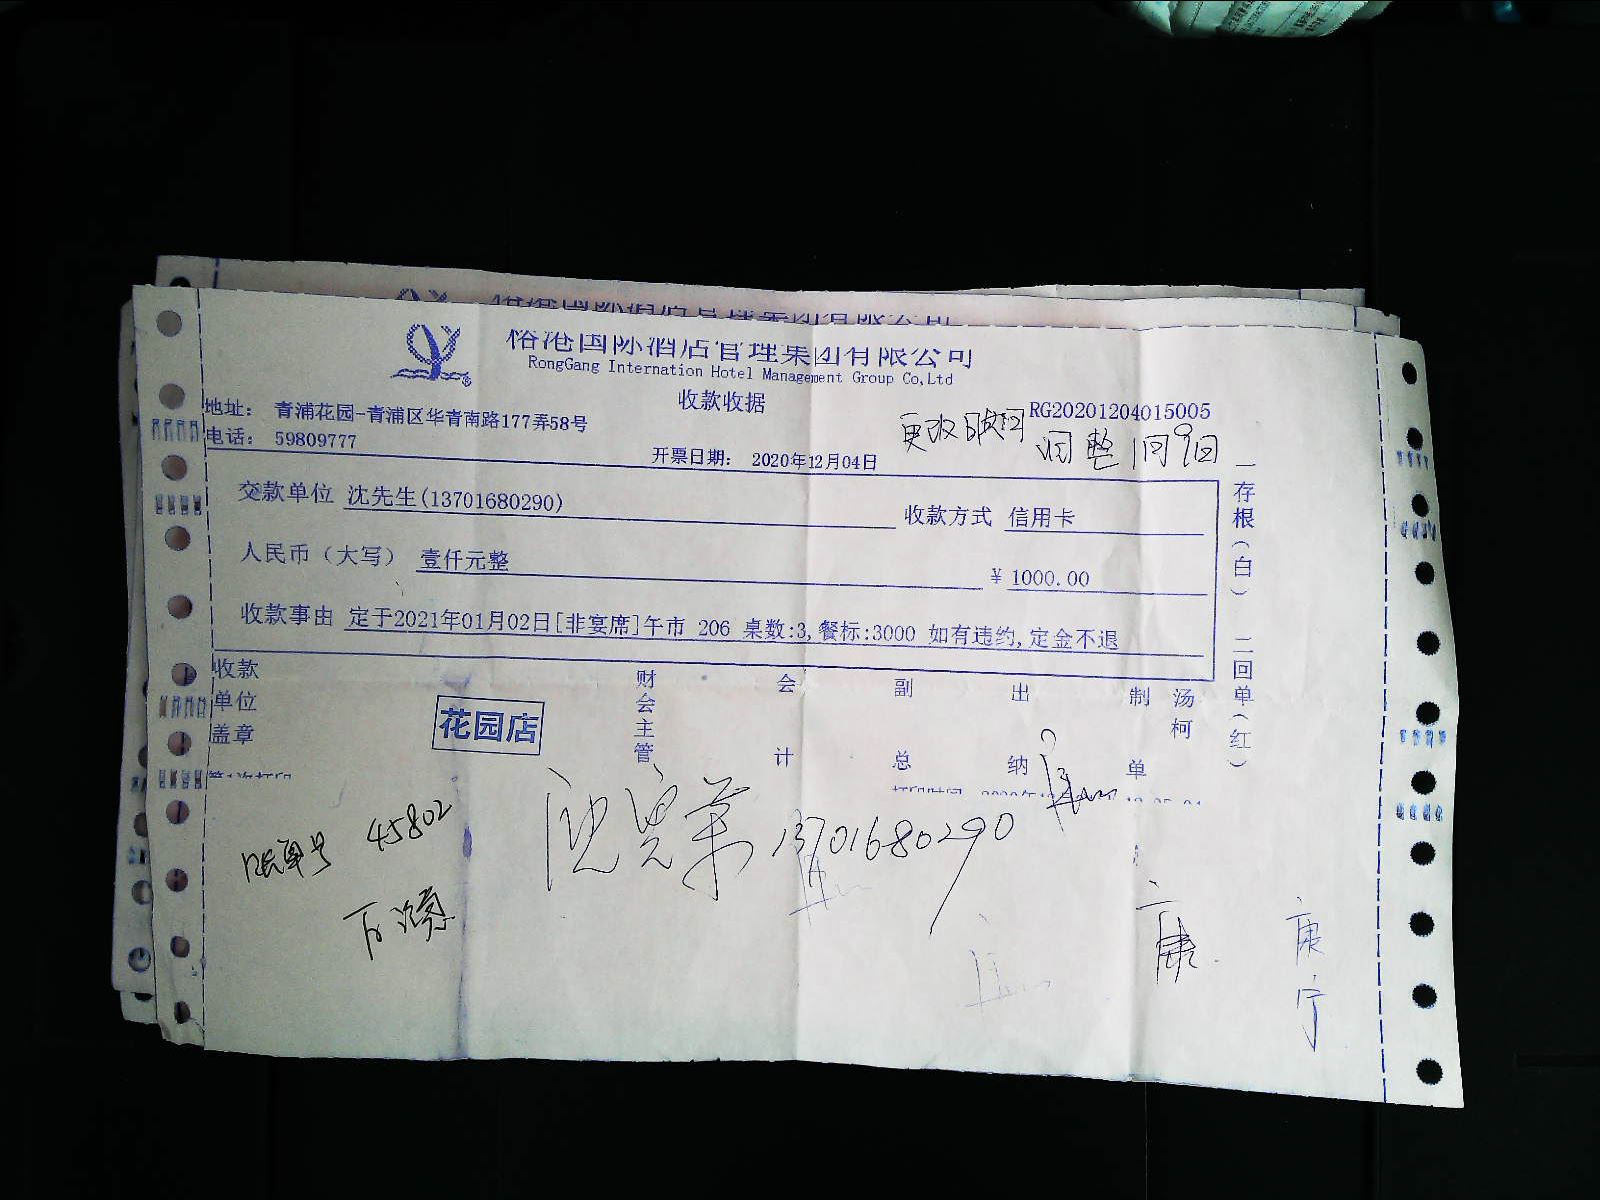 榕港国际酒店管理集团有限公司
RongGang Internation Hotel Management Group Co,Ltd
收款收据
地址： 青浦花园-青浦区华青南路177弄58号
RG20201204015005
电话： 59809777
更改时间
调整1月9日
开票日期： 2020年12月04日
交款单位 沈先生(13701680290)
收款方式 信用卡
人民币（大写） 壹仟元整
¥ 1000.00
收款事由 定于2021年01月02日[非宴席]午市 206 桌数:3,餐标:3000 如有违约,定金不退
一存根(白) 二回单(红)
收款单位盖章
花园店
财会主管
会计
副总
出纳
制单
汤柯
账单号 45802
13701680290
康
康宁